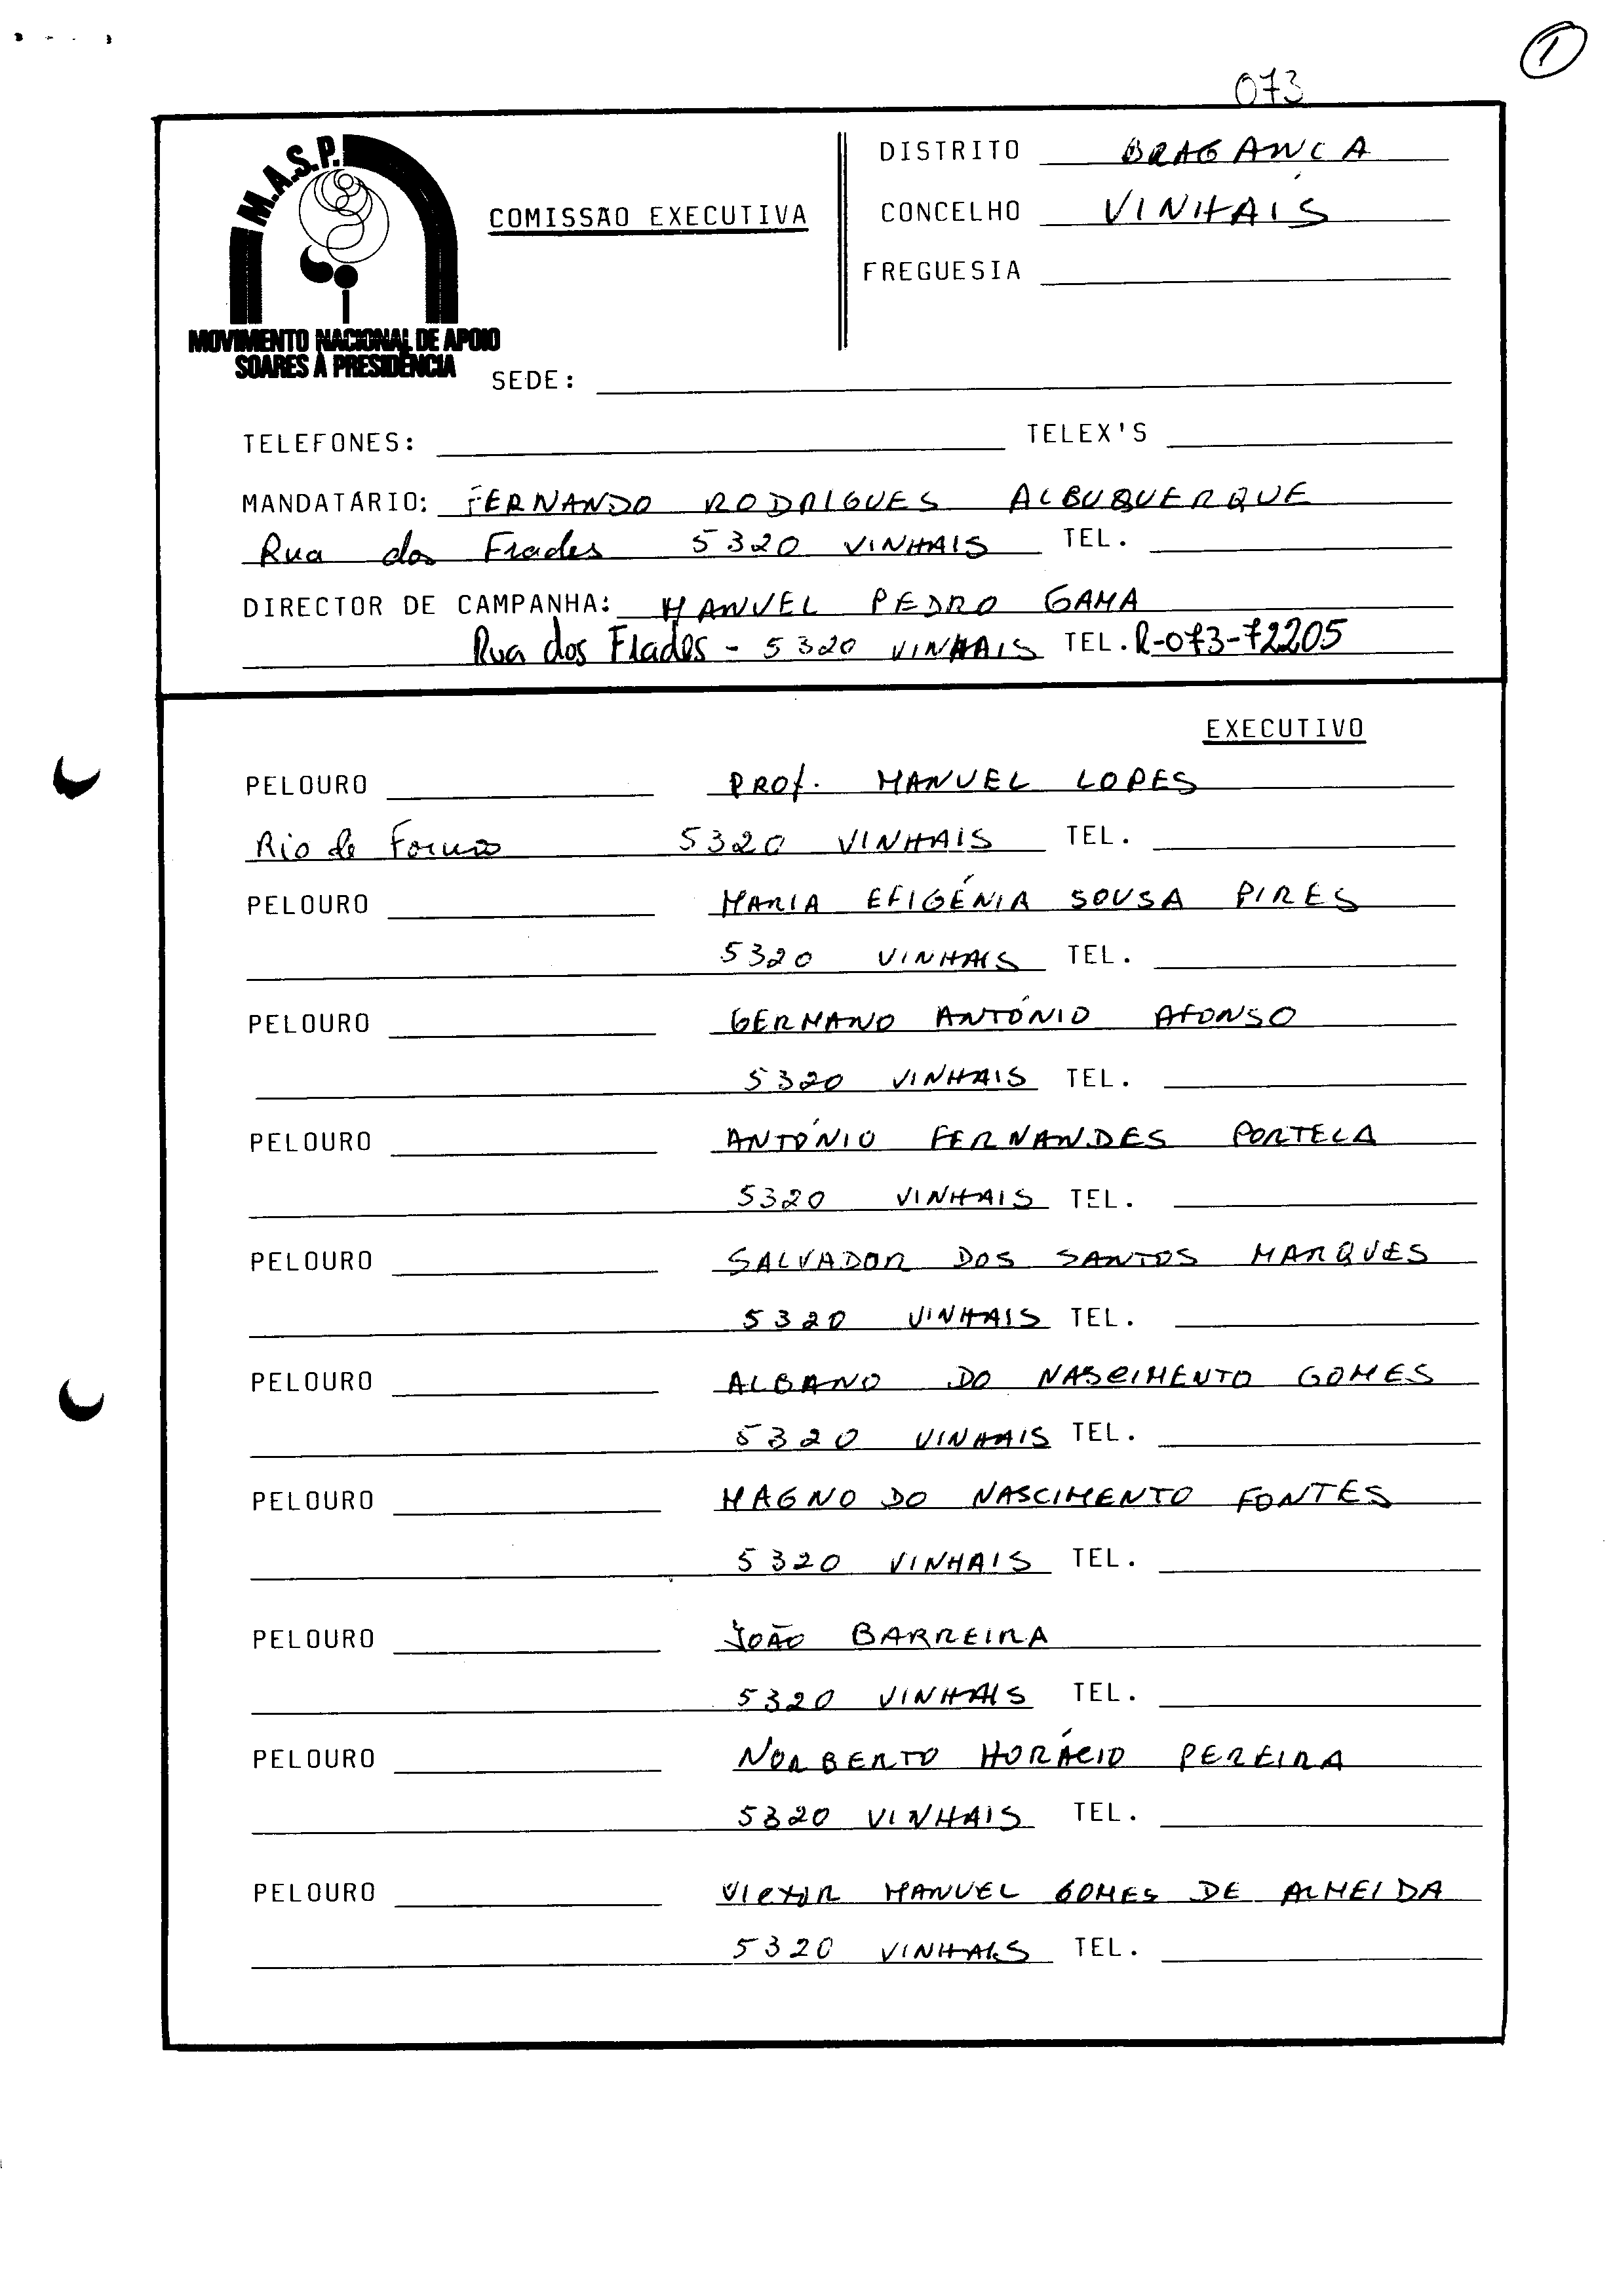 1
073
M.A.S.P.
MOVIMENTO NACIONAL DE APOIO
SOARES À PRESIDÊNCIA
COMISSÃO EXECUTIVA
DISTRITO BRAGANÇA
CONCELHO VINHAIS
FREGUESIA
SEDE:
TELEFONES: TELEX'S
MANDATÁRIO: FERNANDO RODRIGUES ALBUQUERQUE
Rua dos Frades 5320 VINHAIS TEL.
DIRECTOR DE CAMPANHA: MANUEL PEDRO GAMA
Rua dos Frades - 5320 VINHAIS TEL. R-073-72205
EXECUTIVO
PELOURO PROf. MANUEL LOPES
Rio de 5320 VINHAIS TEL.
PELOURO MARIA EFIGÉNIA SOUSA PIRES
5320 VINHAIS TEL.
PELOURO GERMANO ANTÓNIO AFONSO
5320 VINHAIS TEL.
PELOURO ANTÓNIO FERNANDES PORTELA
5320 VINHAIS TEL.
PELOURO SALVADOR DOS SANTOS MARQUES
5320 VINHAIS TEL.
PELOURO ALBANO DO NASCIMENTO GOMES
5320 VINHAIS TEL.
PELOURO MAGNO DO NASCIMENTO FONTES
5320 VINHAIS TEL.
PELOURO JOÃO BARREIRA
5320 VINHAIS TEL.
PELOURO NORBERTO HORÁCIO PEREIRA
5320 VINHAIS TEL.
PELOURO VICTOR MANUEL GOMES DE ALMEIDA
5320 VINHAIS TEL.